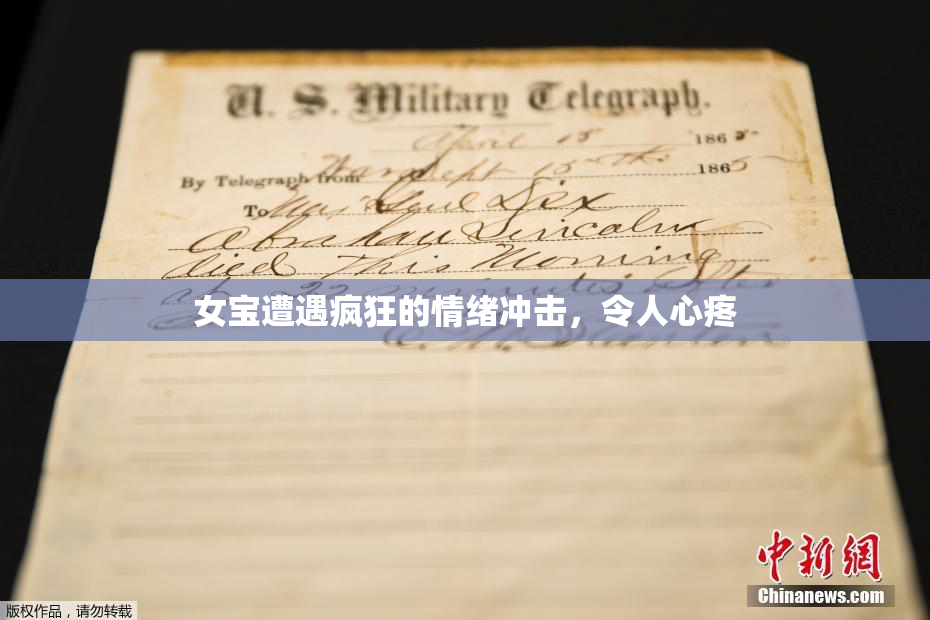 U. S. Military Telegraph.
April 15 1865
By Telegraph from War Dept 15th 1865
To Maj Genl Dix
Abraham Lincoln
died This Morning
at 22 minutes after
女宝遭遇疯狂的情绪冲击，令人心疼
E. M. Stanton
中新网
Chinanews.com
版权作品，请勿转载